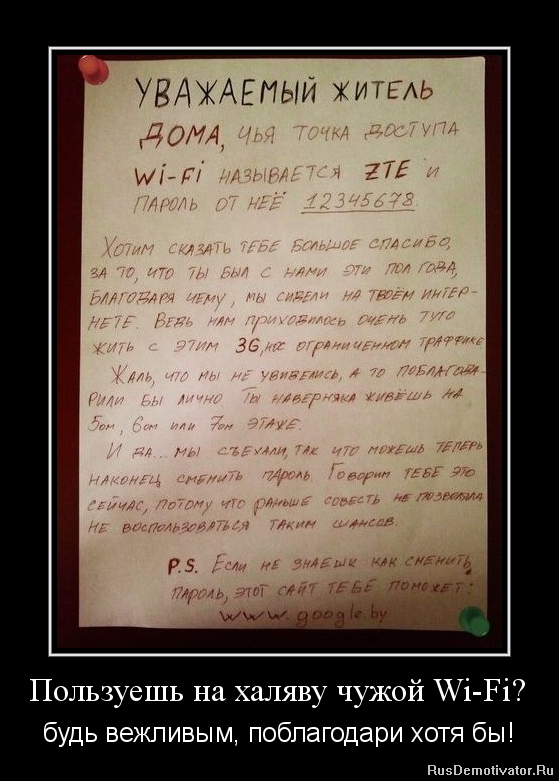 УВАЖАЕМЫЙ ЖИТЕЛЬ
ДОМА, ЧЬЯ ТОЧКА ДОСТУПА
Wi-Fi НАЗЫВАЕТСЯ ZTE И
ПАРОЛЬ ОТ НЕЁ 12345678.
ХОТИМ СКАЗАТЬ ТЕБЕ БОЛЬШОЕ СПАСИБО,
ЗА ТО, ЧТО ТЫ БЫЛ С НАМИ ЭТИ ПОЛ ГОДА,
БЛАГОДАРЯ ЧЕМУ, МЫ СИДЕЛИ НА ТВОЁМ ИНТЕР-
НЕТЕ. ВЕДЬ НАМ ПРИХОДИЛОСЬ ОЧЕНЬ ТУГО
ЖИТЬ С ЭТИМ 3G, ОГРАНИЧЕННОМ ТРАФФИКЕ
ЖАЛЬ, ЧТО МЫ НЕ УВИДЕЛИСЬ, А ТО ПОБЛАГОДА-
РИЛИ БЫ ЛИЧНО ТЫ НАВЕРНЯКА ЖИВЁШЬ НА
5ом, 6ом ИЛИ 7ом ЭТАЖЕ.
И ДА... МЫ СЪЕХАЛИ, ТАК ЧТО МОЖЕШЬ ТЕПЕРЬ
НАКОНЕЦ СМЕНИТЬ ПАРОЛЬ. ГОВОРИМ ТЕБЕ ЭТО
СЕЙЧАС, ПОТОМУ ЧТО РАНЬШЕ СОВЕСТЬ НЕ ПОЗВОЛЯЛА
НЕ ВОСПОЛЬЗОВАТЬСЯ ТАКИМ ШАНСОМ.
P.S. ЕСЛИ НЕ ЗНАЕШЬ КАК СМЕНИТЬ
ПАРОЛЬ, ЭТОТ САЙТ ТЕБЕ ПОМОЖЕТ:
www.google.by
Пользуешь на халяву чужой Wi-Fi?
будь вежливым, поблагодари хотя бы!
RusDemotivator.Ru